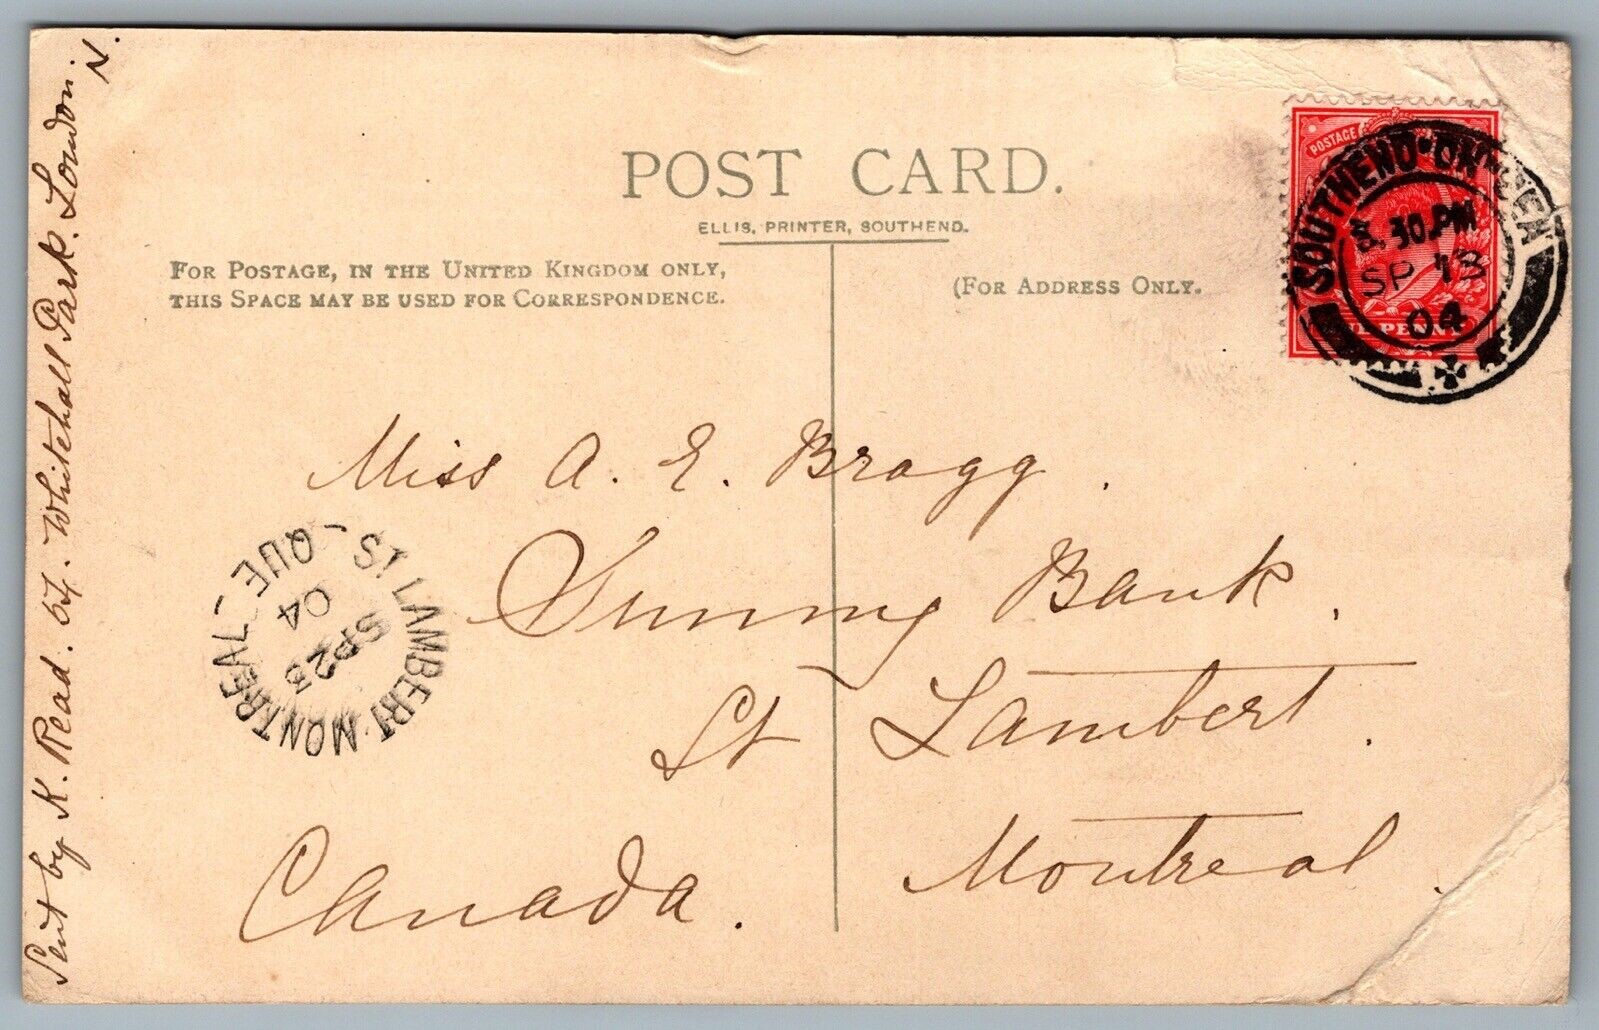 POST CARD.
ELLIS, PRINTER, SOUTHEND.
FOR POSTAGE, IN THE UNITED KINGDOM ONLY,
THIS SPACE MAY BE USED FOR CORRESPONDENCE.
(FOR ADDRESS ONLY.
POSTAGE
NE PENNY
SOUTHEND·ON·SEA
8.30.PM
SP 13
04
Miss A. E. Bragg.
Sunny Bank.
St Lambert.
Montreal.
Canada.
ST LAMBERT·MONTREAL-QUE-
SP23
04
Sent by K. Read. 67. Whitehall Park. London.
N.